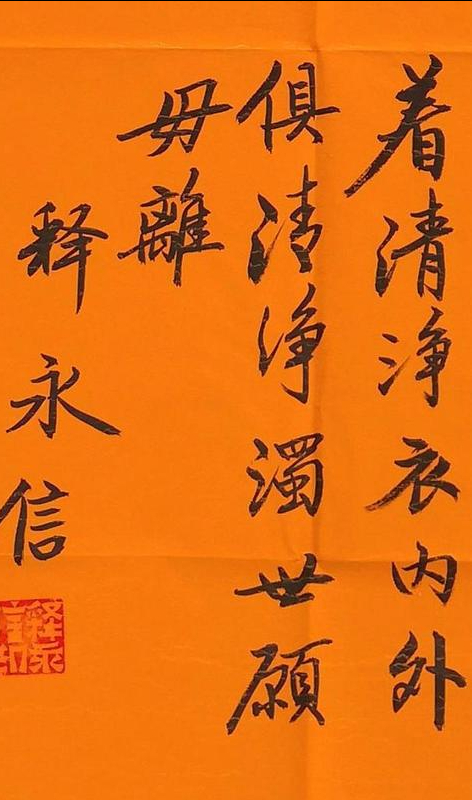 着清浄衣内外
俱清浄濁世願
毋離
释永信